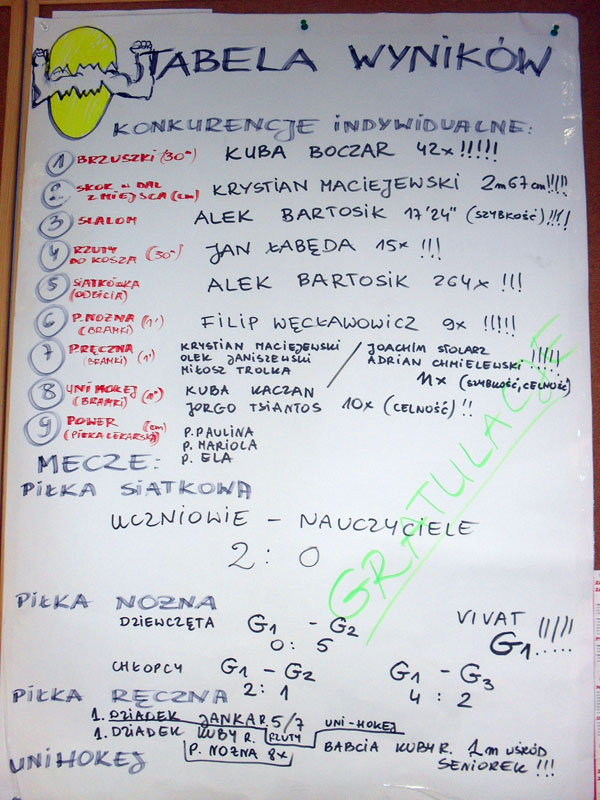 TABELA WYNIKÓW
KONKURENCJE INDYWIDUALNE:
1 BRZUSZKI (30") KUBA BOCZAR 42x !!!!!
2 SKOK W DAL Z MIEJSCA (cm) KRYSTIAN MACIEJEWSKI 2m67cm!!!!
3 SLALOM ALEK BARTOSIK 17'24" (SZYBKOŚĆ) !!!!
4 RZUTY DO KOSZA (30") JAN ŁABĘDA 15x !!!
5 SIATKÓWKA (ODBICIA) ALEK BARTOSIK 264x !!!
6 P. NOŻNA (BRAMKI) (1') FILIP WĘCŁAWOWICZ 9x !!!!!
7 P.RĘCZNA (BRAMKI) (1') KRYSTIAN MACIEJEWSKI / JOACHIM STOLARZ
OLEK JANISZEWSKI ADRIAN CHMIELEWSKI !!!!!
MIŁOSZ TROLKA 11x (SZYBKOŚĆ, CELNOŚĆ)
8 UNI HOKEJ (BRAMKI) (1') KUBA KACZAN
JORGO TSIANTOS 10x (CELNOŚĆ) !!
9 POWER (cm) (PIŁKA LEKARSKA) P. PAULINA
P. MARIOLA
P. ELA
GRATULACJE
MECZE:
PIŁKA SIATKOWA
UCZNIOWIE - NAUCZYCIELE
2 : 0
PIŁKA NOŻNA
DZIEWCZĘTA G1 - G2
0 : 5
VIVAT !!!!!
G1.....
CHŁOPCY G1 - G2 G1 - G3
2 : 1 4 : 2
PIŁKA RĘCZNA
1. DZIADEK JANKA R. 5/7 UNI-HOKEJ
1. DZIADEK KUBY R. RZUTY
P. NOŻNA 8x BABCIA KUBY R. 1m WŚRÓD
SENIOREK !!!
UNIHOKEJ